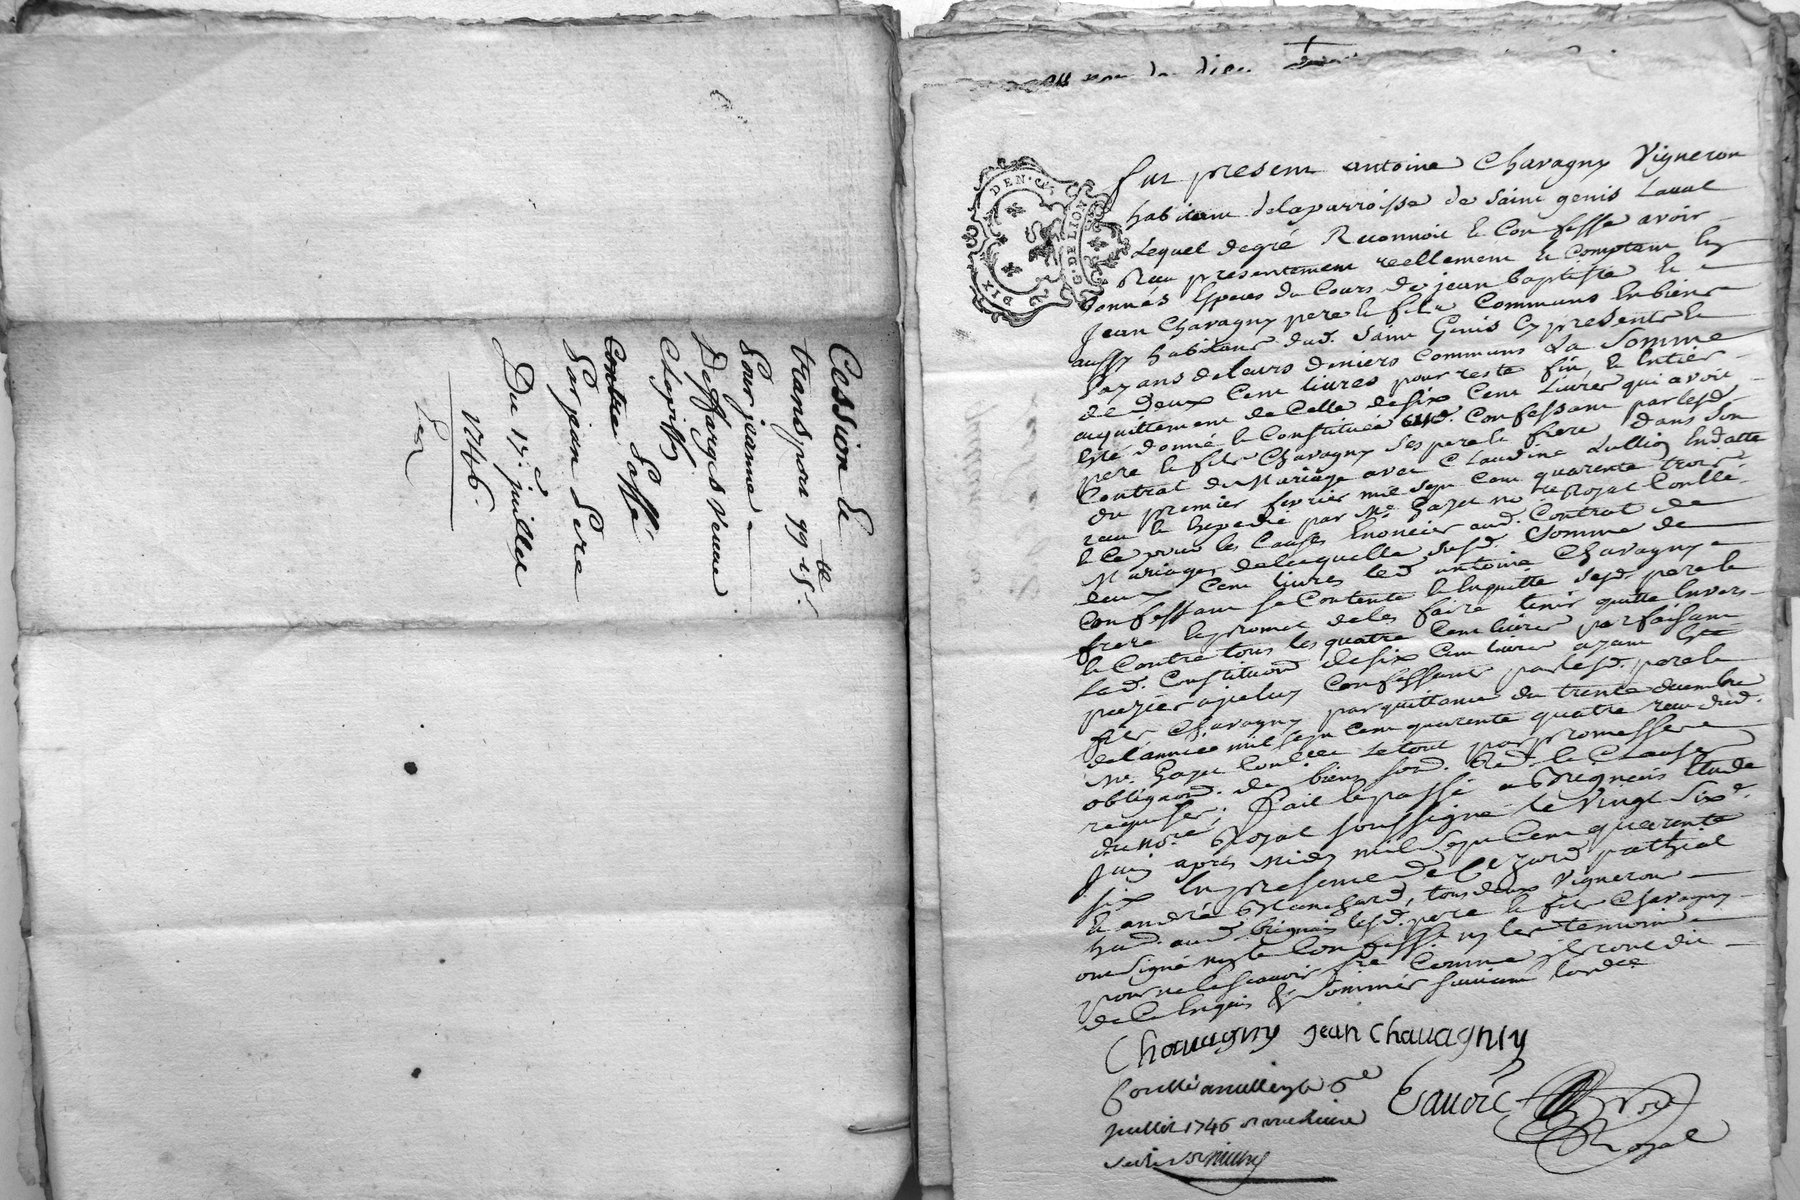 Cession &
transport 99 lt 15 s.
Pour jeanne
Deffarges veuve
Clapisson
Contre Laffé
Sarjean Pere
Du 17e. juillet
1746
DIX DEN. G. DE LION
fut present antoine Chavagny Vigneron
habitant delaparroisse de Saint genis Laval
Lequel degré Reconnoit & Confesse avoir
Receu presentement reellement & Comptant En
bonnes Especes du Cours de jean baptiste &
Jean Chavagny pere & fils Communs En biens
aussy habitans dud. Saint Genis Cy presents &
payans deleurs deniers Communs La Somme
de Deux Cent livres pour reste fin & Entier
acquittement de Celle desix Cent Livres qui avoit
Esté donné & Constituée aud. Confessant par lesd.
pere & fils Chavagny ses pere & frere Dans Son
Contrat de Mariage avec Claudine Dullion Endatte
du premier fevrier mil sept Cent quarente trois
receu & Expedié par Me. Gazet nore Royal Conllé.
& Ce pour les Causes Enoncées aud. Contrat de
Mariage, delaquelle susd. Somme de
deux Cent livres led. antoine Chavagny
Confessant se Contente & Enquitte sesd. pere &
frere & promet deles faire tenir quitte Envers
& Contre tous les quatre Cent livres parfaisant
Lad. Constitution desix Cent livres ayant Eté
payées aiceluy Confessant par lesd. pere &
fils Chavagny par quittance du trente decembre
del'année mil sept Cent quarente quatre receu dud.
Me. Gazet Conllée Letout par promesse
obligaon. de biens soud. Red. & Clauses
requises, Fait & passé a Brignais Etude
du nore. Royal soussigné le vingt Sixe.
Juin après Midy mil sept Cent quarente
six En presence de Cezard pathial
& andré Blanchard, tous deux Vigneron
hat. aud. brignais lesd. pere & fils Chavagny
ont Signé non le Confessant ny les temoins
pour ne le scavoir fre Comme ils ont dit
de Ce Enquis & Sommés suivant lordce
Chavagny jean Chavagniy
Conllé a millery le 6e
juillet 1746
Royal